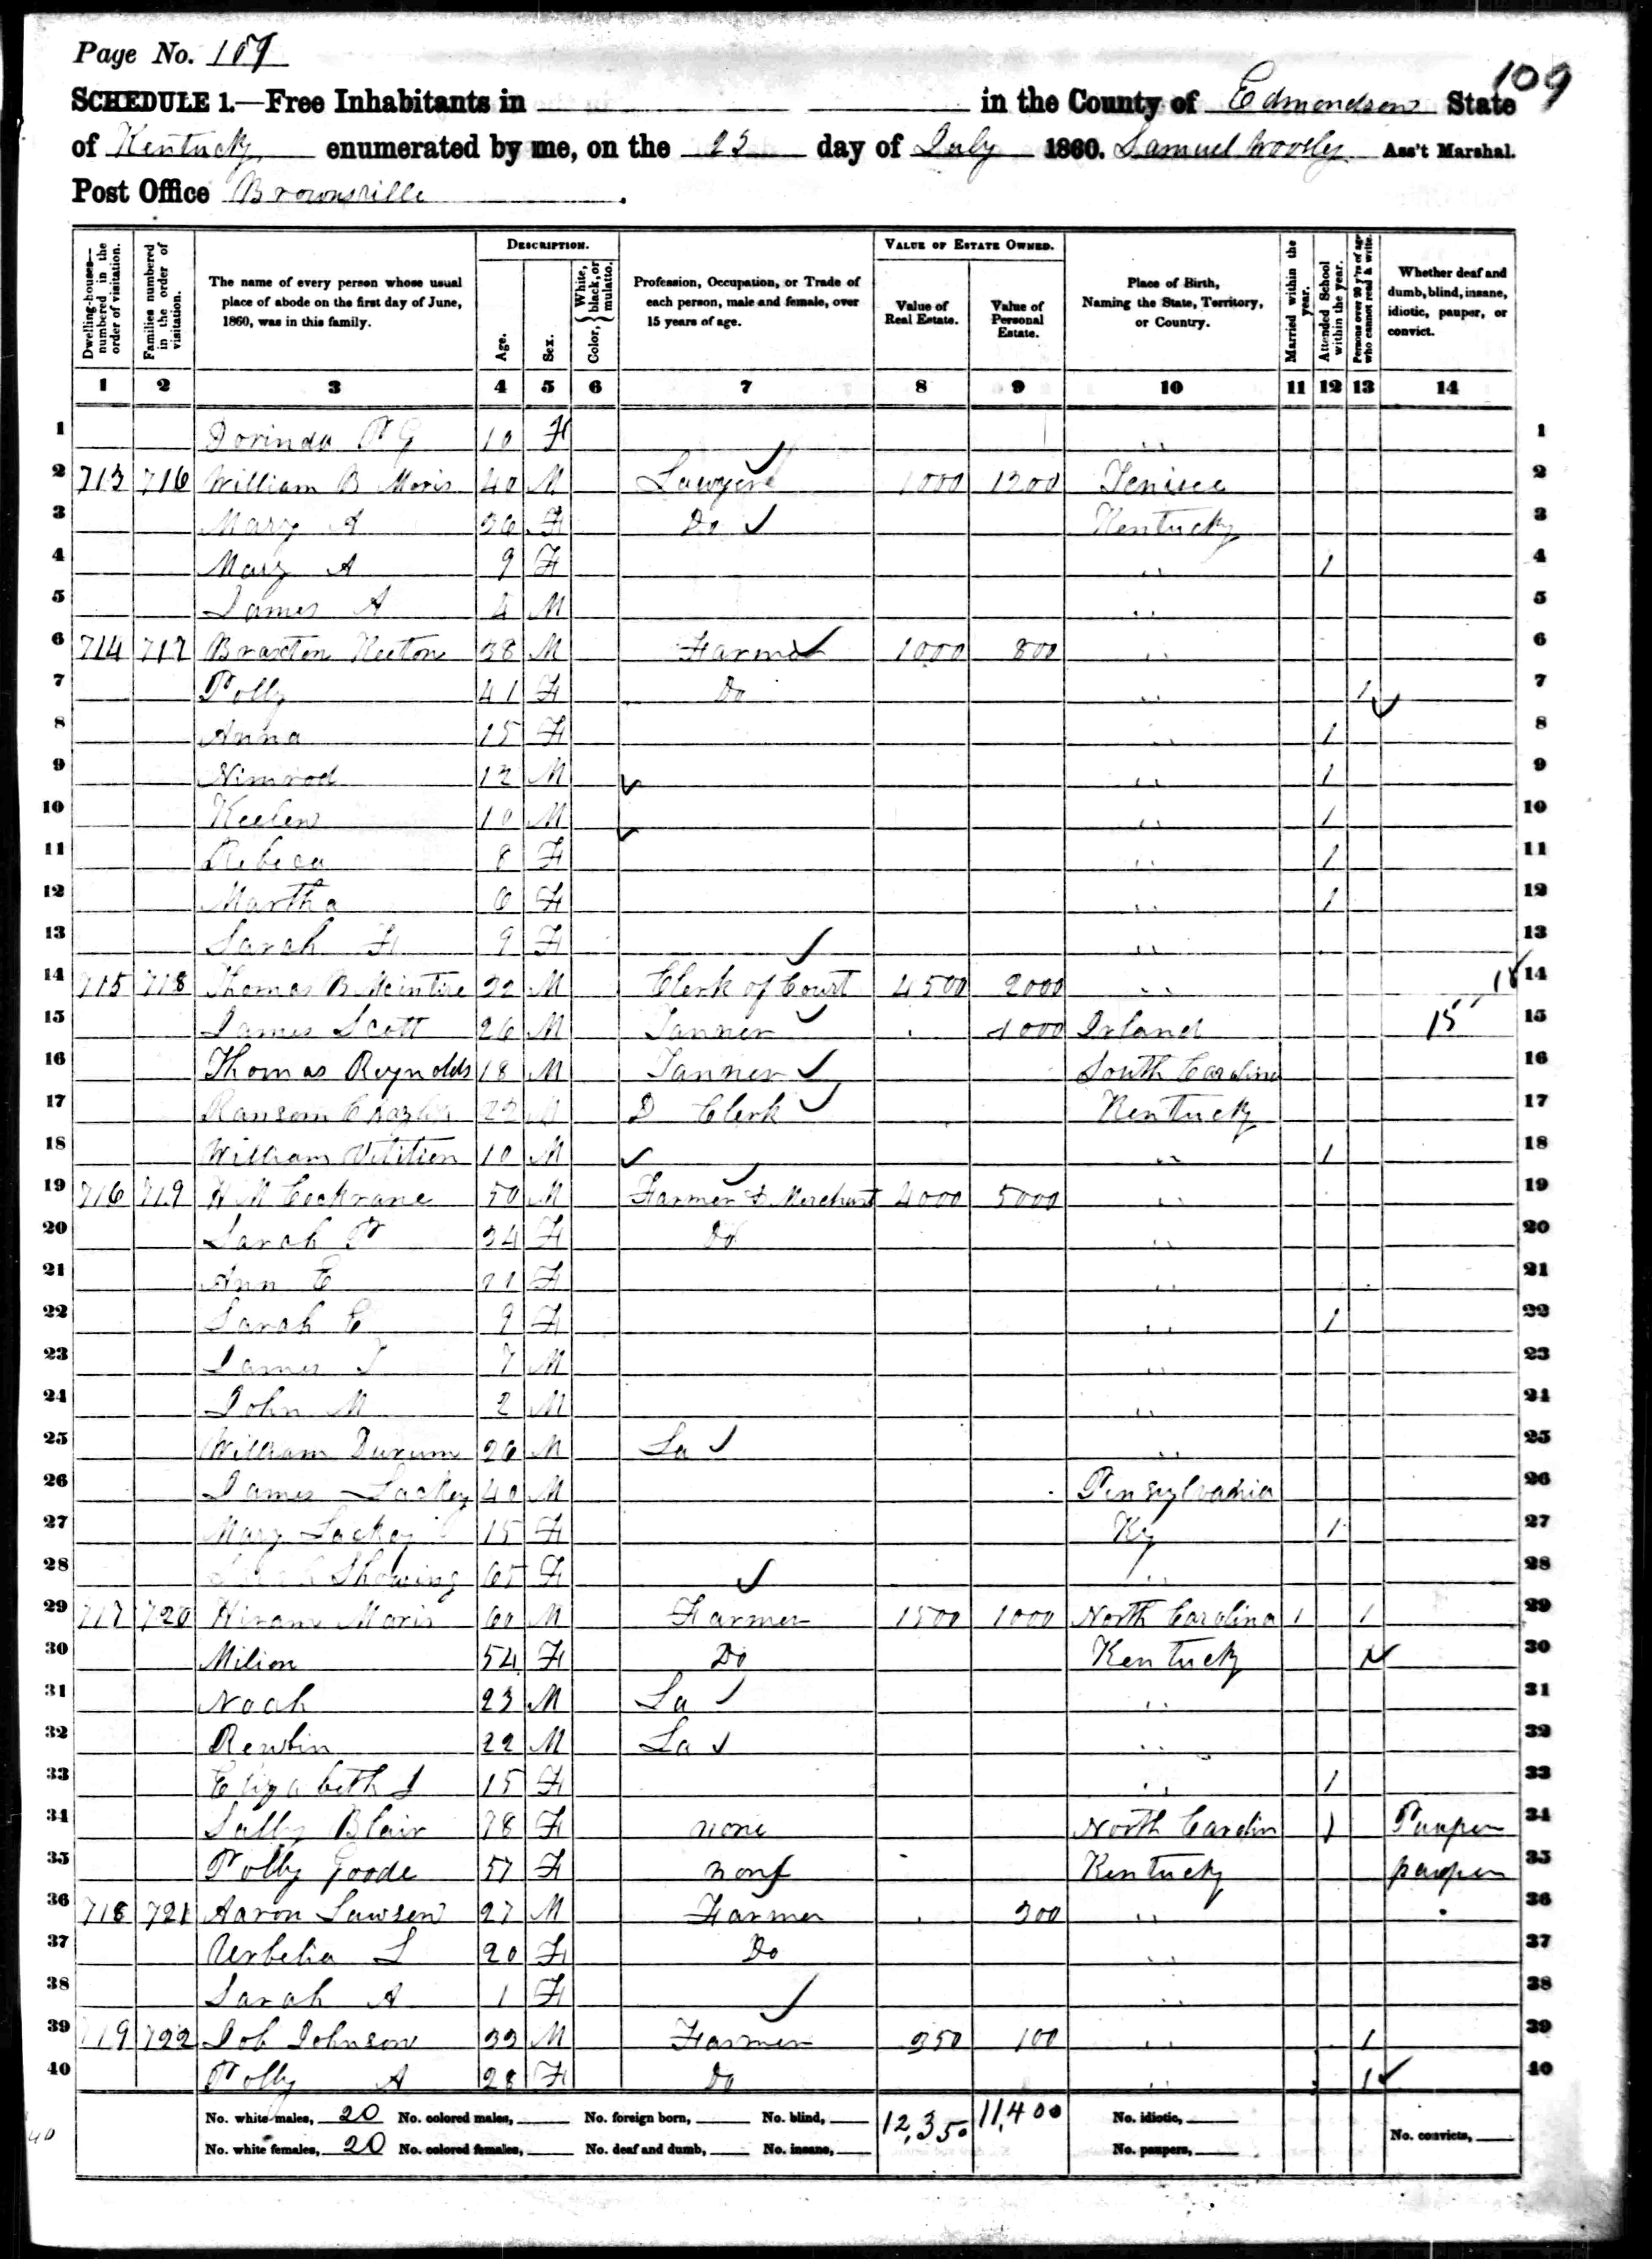 Page No. 109
109
SCHEDULE 1.—Free Inhabitants in in the County of Edmondson State
of Kentucky enumerated by me, on the 23 day of July 1860. Samuel Woosley Ass't Marshal.
Post Office Brownsville.
Dwelling-houses—numbered in the order of visitation. Families numbered in the order of visitation. The name of every person whose usual place of abode on the first day of June, 1860, was in this family. DESCRIPTION. Age. Sex. Color, White, black, or mulatto. Profession, Occupation, or Trade of each person, male and female, over 15 years of age. VALUE OF ESTATE OWNED. Value of Real Estate. Value of Personal Estate. Place of Birth, Naming the State, Territory, or Country. Married within the year. Attended School within the year. Persons over 20 y'rs of age who cannot read & write. Whether deaf and dumb, blind, insane, idiotic, pauper, or convict.
1 2 3 4 5 6 7 8 9 10 11 12 13 14
1 Dorinda P G 10 F " 1
2 713 716 William B Moris 40 M Lawyer 1000 1200 Tenisee 2
3 Mary A 36 F Do Kentucky 3
4 Mary A 9 F " 1 4
5 James A 4 M " 5
6 714 717 Braxton Keeton 38 M Farmer 1000 800 " 6
7 Polly 41 F Do " 1 7
8 Anna 15 F " 1 8
9 Nimrod 12 M " 1 9
10 10 M " 1 10
11 Rebeca 8 F " 1 11
12 Martha 6 F " 1 12
13 Sarah F F " 13
14 715 718 Thomas B McIntire 32 M Clerk of Court 4500 2000 " 14
15 James Scott 26 M Tanner 1000 Irland 15 15
16 Thomas Reynolds 18 M Tanner South Carolina 16
17 Ransom M D Clerk Kentucky 17
18 William 10 M " 1 18
19 716 719 H M Cockrane 50 M Farmer & Merchant 4000 5000 " 19
20 Sarah P 34 F Do " 20
21 Ann E F " 21
22 Sarah E 9 F " 1 22
23 James T 7 M " 23
24 John M 2 M " 24
25 William Durum 26 M La " 25
26 James Lackey 40 M Pensylvania 26
27 Mary Lackey 15 F Ky 1 27
28 65 F " 28
29 717 720 Hiram Moris 60 M Farmer 1500 1000 North Carolina 1 1 29
30 Milion 54 F Do Kentucky 1 30
31 Noah 23 M La " 31
32 Rewbin 22 M La " 32
33 Elizabeth J 15 F " 1 33
34 Sally Blair 78 F none North Carolin 1 Pauper 34
35 Polly Goode 57 F none Kentucky pauper 35
36 718 721 Aaron Lawson 27 M Farmer 300 " 36
37 Urbelia L 20 F Do " 37
38 Sarah A 1 F " 38
39 719 722 Job Johnson 33 M Farmer 350 100 " 1 39
40 Polly A 28 F Do " 1 40
No. white males, 20 No. colored males, No. foreign born, No. blind, 12,350 11,400 No. idiotic,
40 No. white females, 20 No. colored females, No. deaf and dumb, No. insane, No. paupers, No. convicts,